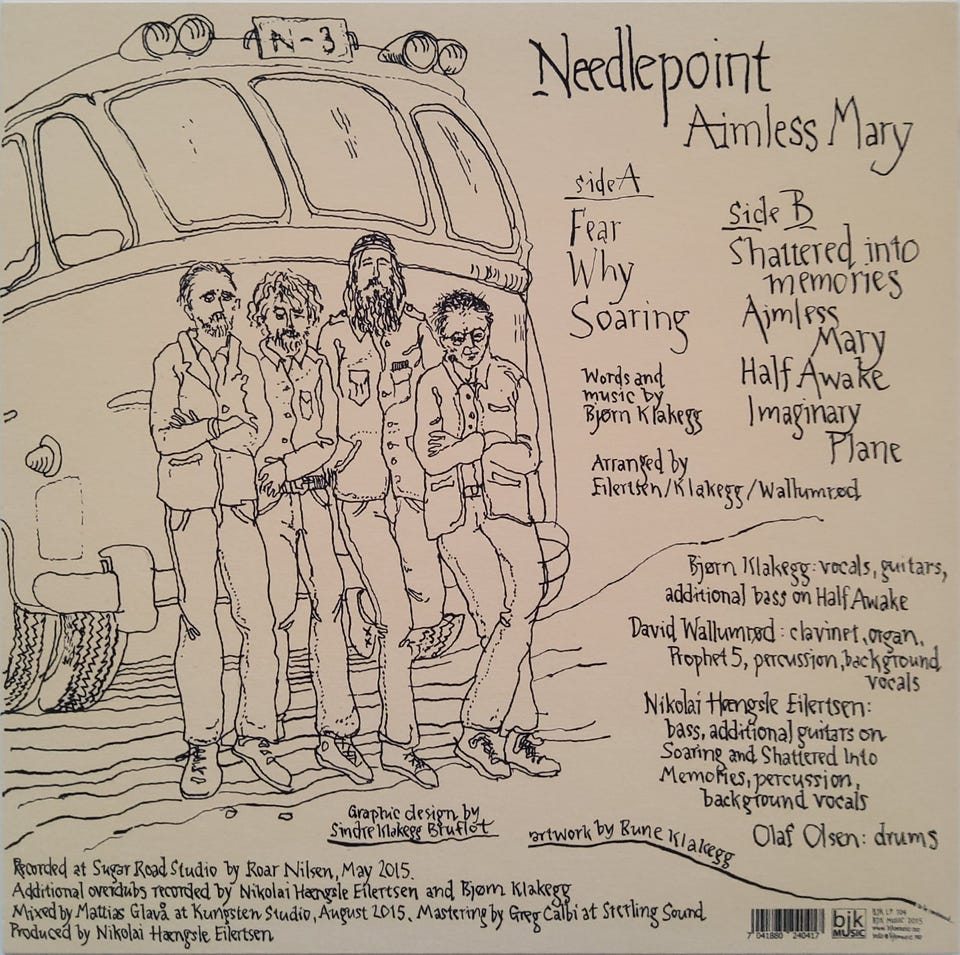 AN-3
Needlepoint
Aimless Mary
side A
Fear
Why
Soaring
Words and
music by
Bjørn Klakegg
Arranged by
Eilertsen/Klakegg/Wallumrød
Side B
Shattered into
memories
Aimless
Mary
Half Awake
Imaginary
Plane
Bjørn Klakegg: vocals, guitars,
additional bass on Half Awake
David Wallumrød: clavinet, organ,
Prophet 5, percussion, background
vocals
Nikolai Hængsle Eilertsen:
bass, additional guitars on
Soaring and Shattered Into
Memories, percussion,
background vocals
Olaf Olsen: drums
Graphic design by
Sindre Klakegg Bruflot
artwork by Rune Klakegg
Recorded at Sugar Road Studio by Roar Nilsen, May 2015.
Additional overdubs recorded by Nikolai Hængsle Eilertsen and Bjørn Klakegg
Mixed by Mattias Glavå at Kungsten Studio, August 2015. Mastering by Greg Calbi at Sterling Sound
Produced by Nikolai Hængsle Eilertsen
7 041880 240417
bjk
MUSIC
BJK MUSIC 2015